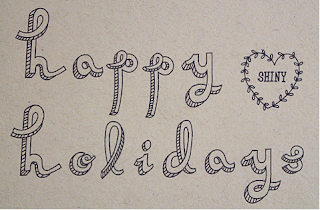 happy
SHINY
holidays